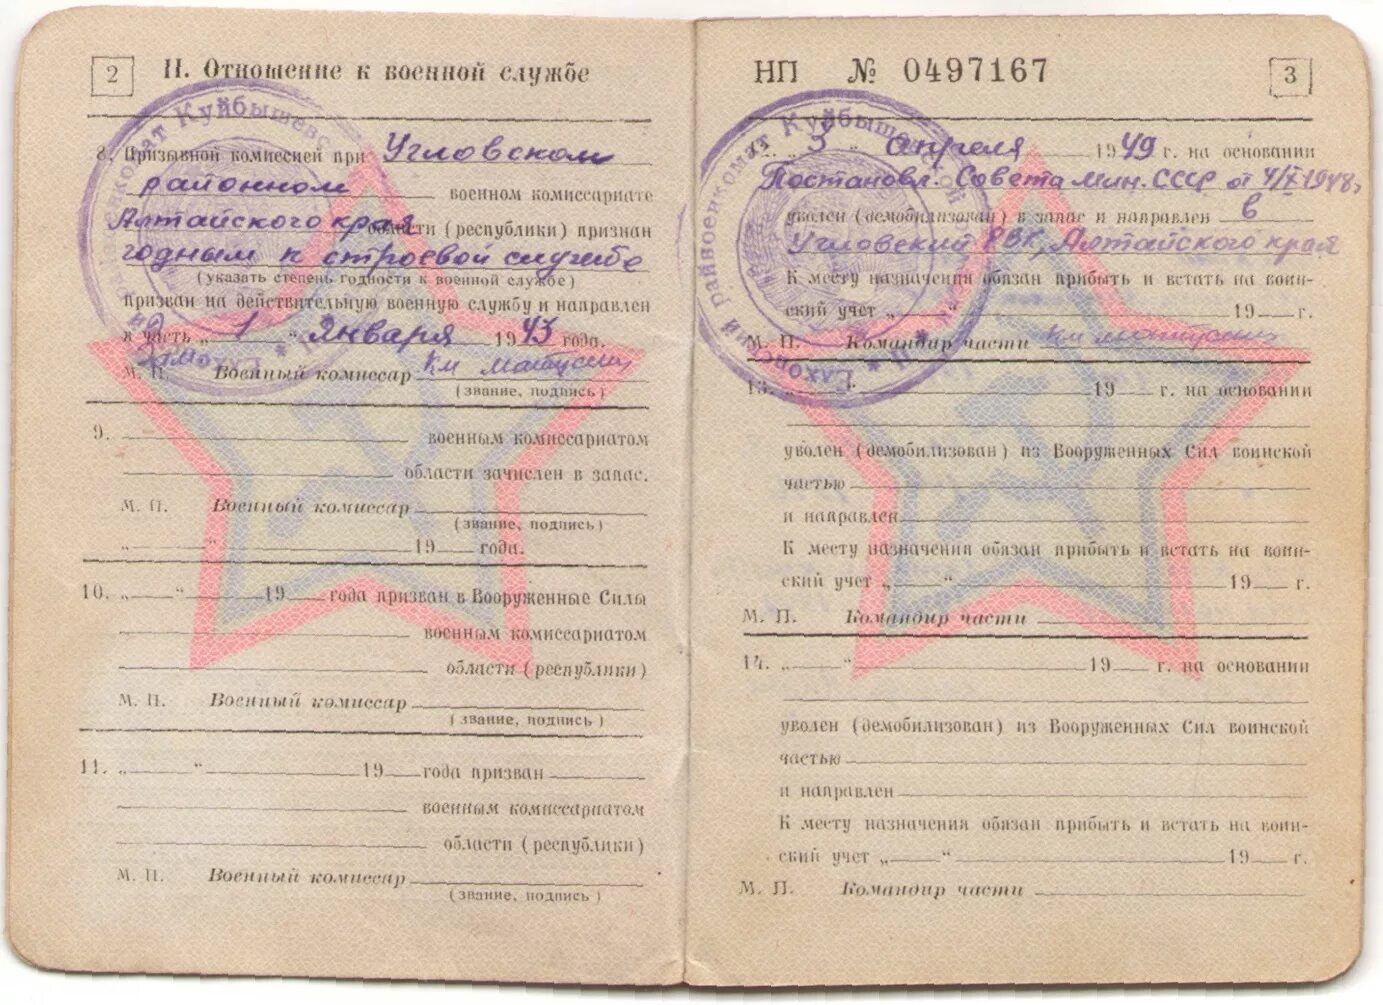 2
II. Отношение к военной службе
8. Призывной комиссией при Угловском
районном военном комиссариате
Алтайского края области (республики) признан
годным к строевой службе
(указать степень годности к военной службе)
призван на действительную военную службу и направлен
в часть „ 1 “ Января 1943 года.
М. П. Военный комиссар
(звание, подпись)
9. военным комиссариатом
области зачислен в запас.
М. П. Военный комиссар
(звание, подпись)
„ “ 19 года.
10. „ “ 19 года призван в Вооруженные Силы
военным комиссариатом
области (республики)
М. П. Военный комиссар
(звание, подпись)
11. „ “ 19 года призван
военным комиссариатом
области (республики)
М. П. Военный комиссар
(звание, подпись)
НП № 0497167
3
„ 5 “ апреля 1949 г. на основании
Постановл. Совета Мин. СССР от
уволен (демобилизован) в запас и направлен в
Угловский РВК, Алтайского края
К месту назначения обязан прибыть и встать на воин-
ский учет „ “ 19 г.
М. П. Командир части
13. „ “ 19 г. на основании
уволен (демобилизован) из Вооруженных Сил воинской
частью
и направлен
К месту назначения обязан прибыть и встать на воин-
ский учет „ “ 19 г.
М. П. Командир части
14. „ “ 19 г. на основании
уволен (демобилизован) из Вооруженных Сил воинской
частью
и направлен
К месту назначения обязан прибыть и встать на воин-
ский учет „ “ 19 г.
М. П. Командир части